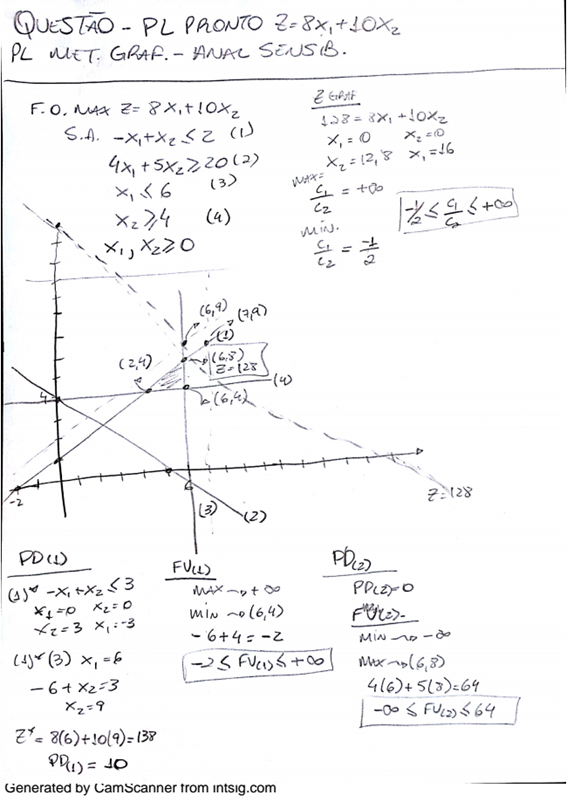 QUESTÃO - PL PRONTO Z=8x₁+10x₂
PL MET. GRAF. - ANAL SENSIB.
F.O. MAX Z= 8x₁+10x₂
S.A. -x₁+x₂ ≤ 2 (1)
4x₁+5x₂ ≥ 20 (2)
x₁ ≤ 6 (3)
x₂ ≥ 4 (4)
x₁, x₂ ≥ 0
Z GRAF
128 = 8x₁+10x₂
x₁=0 x₂=0
x₂=12,8 x₁=16
MAX=
c₁/c₂ = +∞
MIN.
c₁/c₂ = -1/2
-1/2 ≤ c₁/c₂ ≤ +∞
(6,9)
(7,9)
(1)
(2,4)
(6,8)
Z=128
(4)
(6,4)
4
-2
6
(3)
(2)
Z=128
PD(1)
(1)* -x₁+x₂ ≤ 3
x₁=0 x₂=0
x₂=3 x₁=-3
(1)* (3) x₁=6
-6+x₂=3
x₂=9
Z*= 8(6)+10(9)=138
PD(1) = 10
FV(1)
MAX → +∞
MIN → (6,4)
-6+4=-2
-2 ≤ FV(1) ≤ +∞
PD(2)
PD(2)=0
FV(2)-
MIN → -∞
MAX → (6,8)
4(6)+5(8)=64
-∞ ≤ FV(2) ≤ 64
Generated by CamScanner from intsig.com